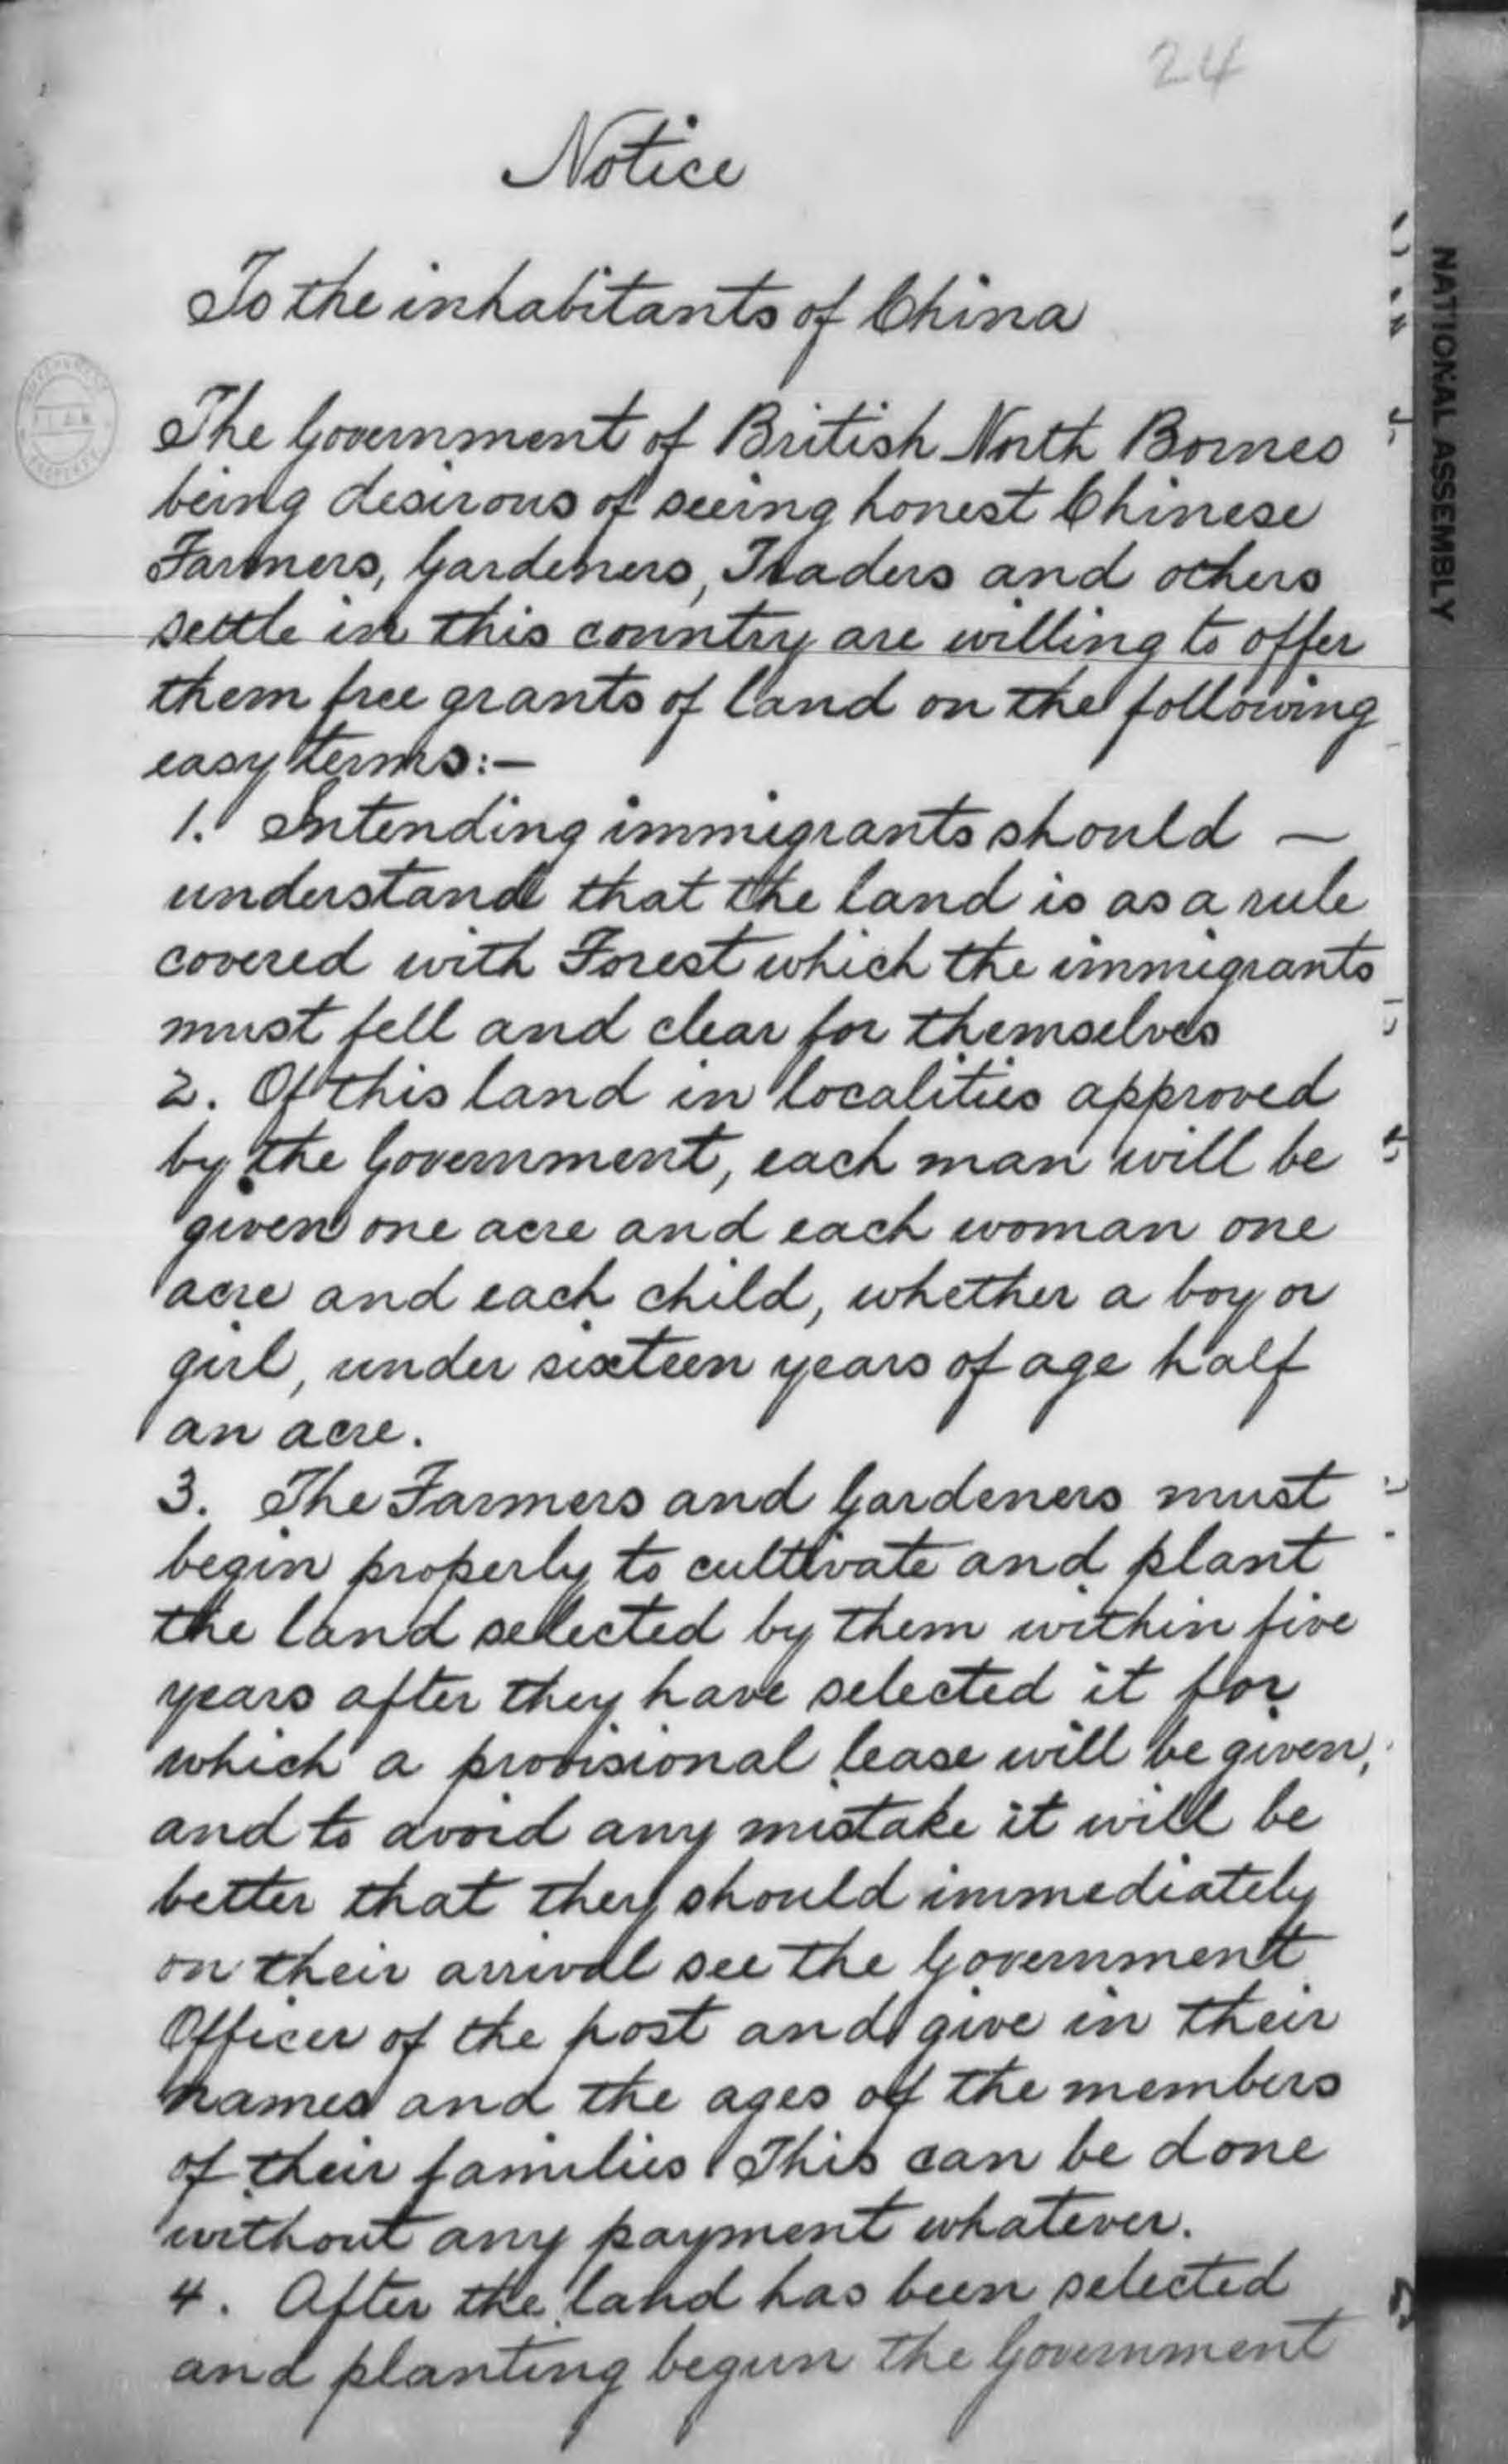 24
Notice
To the inhabitants of China
The Government of British North Borneo
being desirous of seeing honest Chinese
Farmers, Gardeners, Traders and others
settle in this country are willing to offer
them free grants of land on the following
easy terms:—
1. Intending immigrants should —
understand that the land is as a rule
covered with Forest which the immigrants
must fell and clear for themselves
2. Of this land in localities approved
by the Government, each man will be
given one acre and each woman one
acre and each child, whether a boy or
girl, under sixteen years of age half
an acre.
3. The Farmers and Gardeners must
begin properly to cultivate and plant
the land selected by them within five
years after they have selected it for
which a provisional lease will be given,
and to avoid any mistake it will be
better that they should immediately
on their arrival see the Government
Officer of the post and give in their
names and the ages of the members
of their families This can be done
without any payment whatever.
4. After the land has been selected
and planting begun the Government
NATIONAL ASSEMBLY